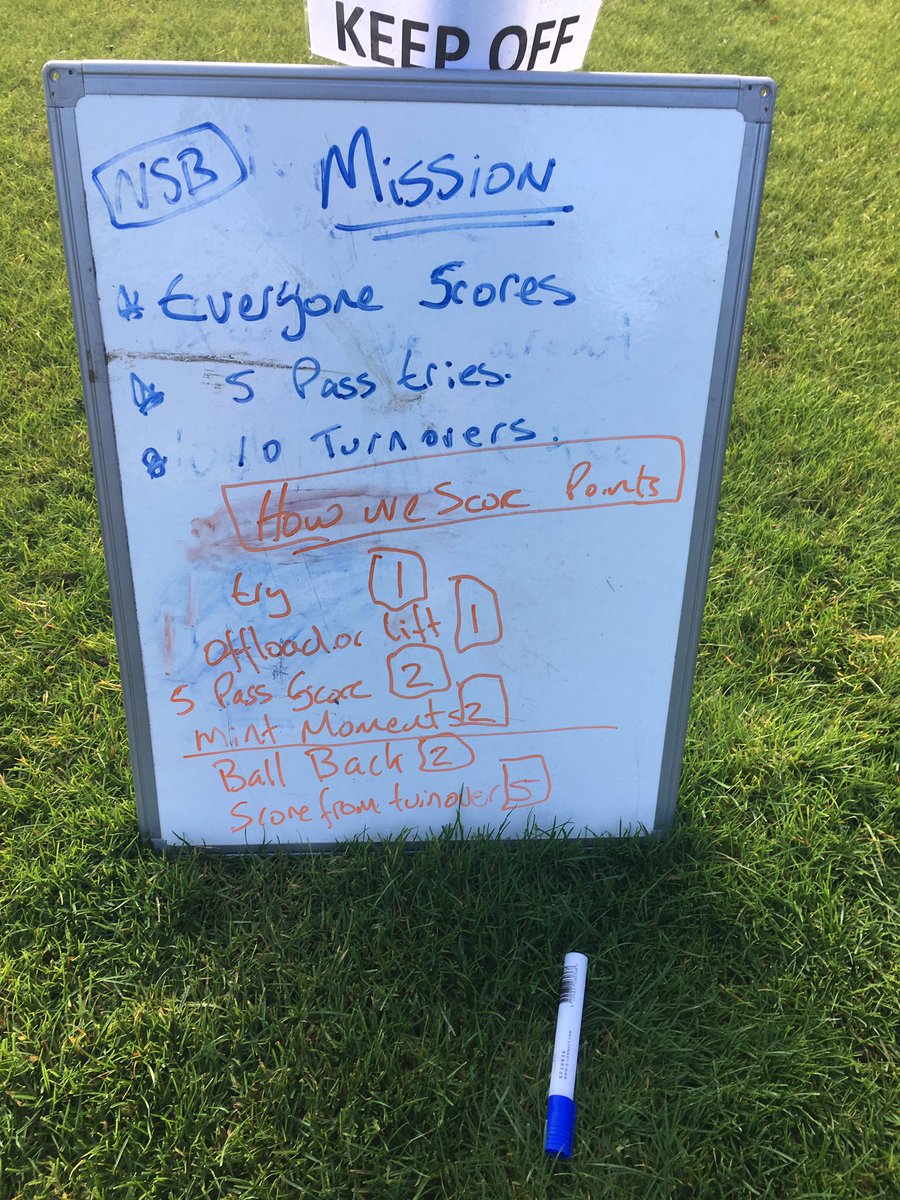 KEEP OFF
NSB Mission
* Everyone Scores
* 5 Pass tries.
* 10 Turnovers.
How we Score Points
try 1
offload or lift 1
5 Pass Score 2
Mint Moments 2
Ball Back 2
Score from turnover 5